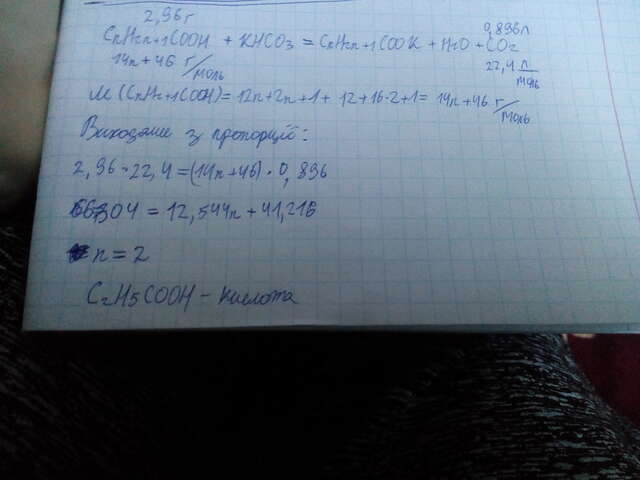 2,96г 0,896л
CnH2n+1COOH + KHCO3 = CnH2n+1COOK + H2O + CO2
14n+46 г/моль 22,4 л/моль
M (CnH2n+1COOH) = 12n+2n+1+ 12+16·2+1 = 14n+46 г/моль
Виходячи з пропорції:
2,96·22,4 = (14n+46) · 0,896
66,304 = 12,544n + 41,216
n = 2
C2H5COOH – кислота